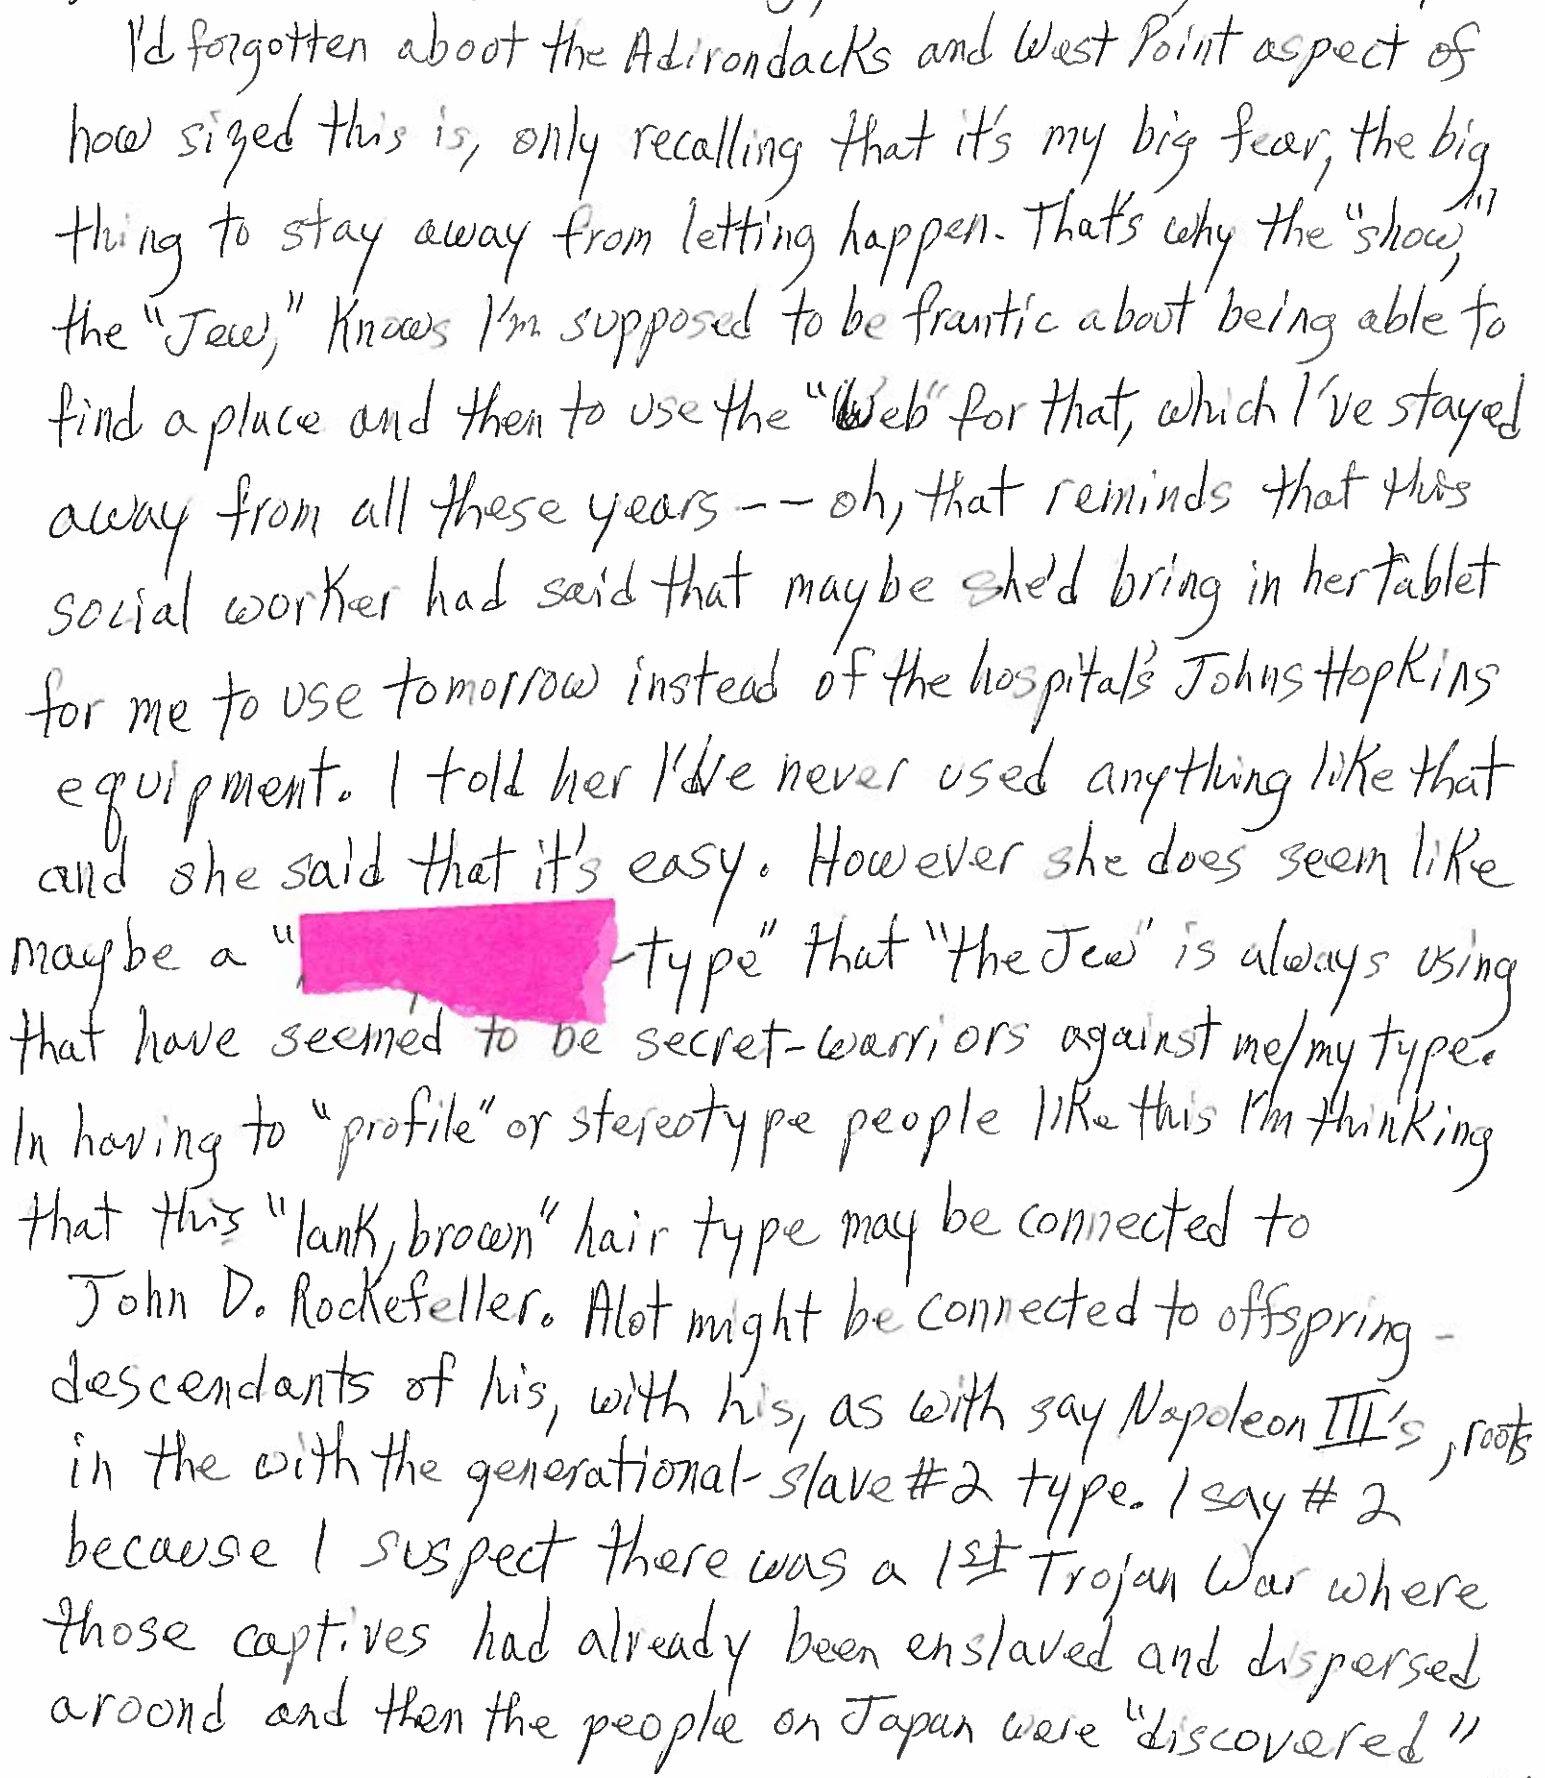 I'd forgotten about the Adirondacks and West Point aspect of
how sized this is, only recalling that it's my big fear, the big
thing to stay away from letting happen. That's why the "show,"
the "Jew," knows I'm supposed to be frantic about being able to
find a place and then to use the "Web" for that, which I've stayed
away from all these years -- oh, that reminds that this
social worker had said that maybe she'd bring in her tablet
for me to use tomorrow instead of the hospital's Johns Hopkins
equipment. I told her I've never used anything like that
and she said that it's easy. However she does seem like
maybe a " -type" that "the Jew" is always using
that have seemed to be secret-warriors against me/my type.
In having to "profile" or stereotype people like this I'm thinking
that this "lank, brown" hair type may be connected to
John D. Rockefeller. Alot might be connected to offspring-
descendants of his, with his, as with say Napoleon III's, roots
in the with the generational-slave #2 type. I say #2
because I suspect there was a 1st Trojan War where
those captives had already been enslaved and dispersed
around and then the people on Japan were "discovered"